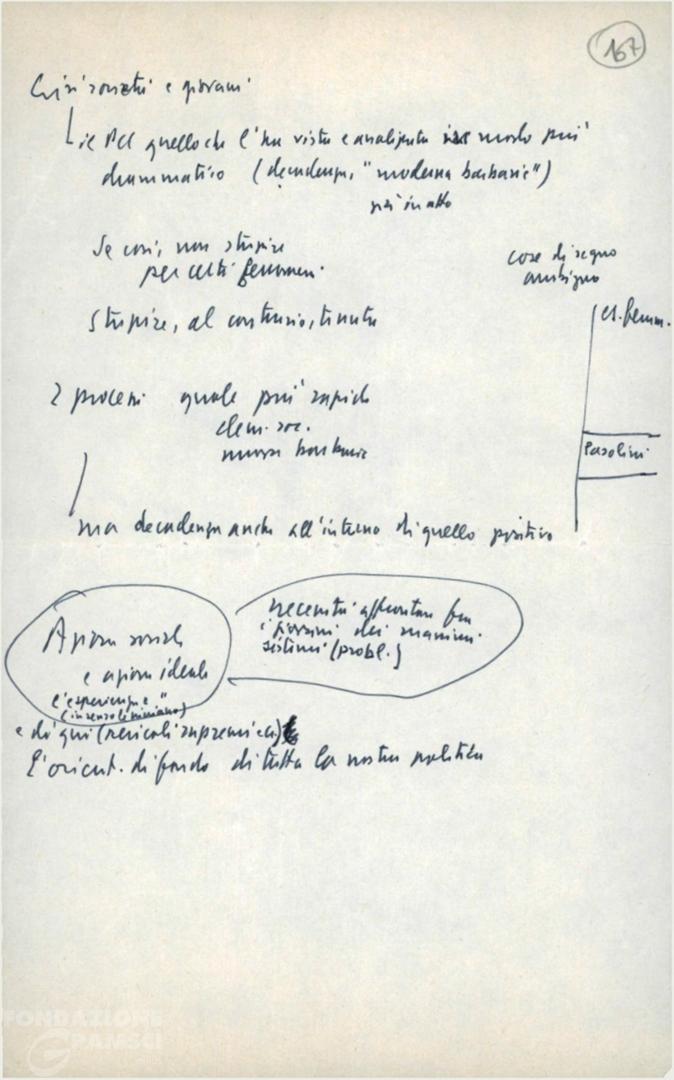 167
Crisi società e giovani
il PCI quello che l'ha vista e analizzata in modo più
drammatico (decadenza, "moderna barbarie")
più in atto
Se così, non stupire
per certi fenomeni
cose di segno
ambiguo
Stupire, al contrario, tenuta
es. femm.
2 processi quale più rapido
dem. soc.
nuova barbarie
Pasolini
ma decadenza anche all'interno di quello positivo
Azione sociale
e azione ideale
l'"esperienza"
(in senso leniniano)
necessità affrontare fra
i giovani dei massimi
sistemi (probl.)
e di qui (pericoli supremi ecc.)
l'orient. di fondo di tutta la nostra politica
FONDAZIONE
GRAMSCI